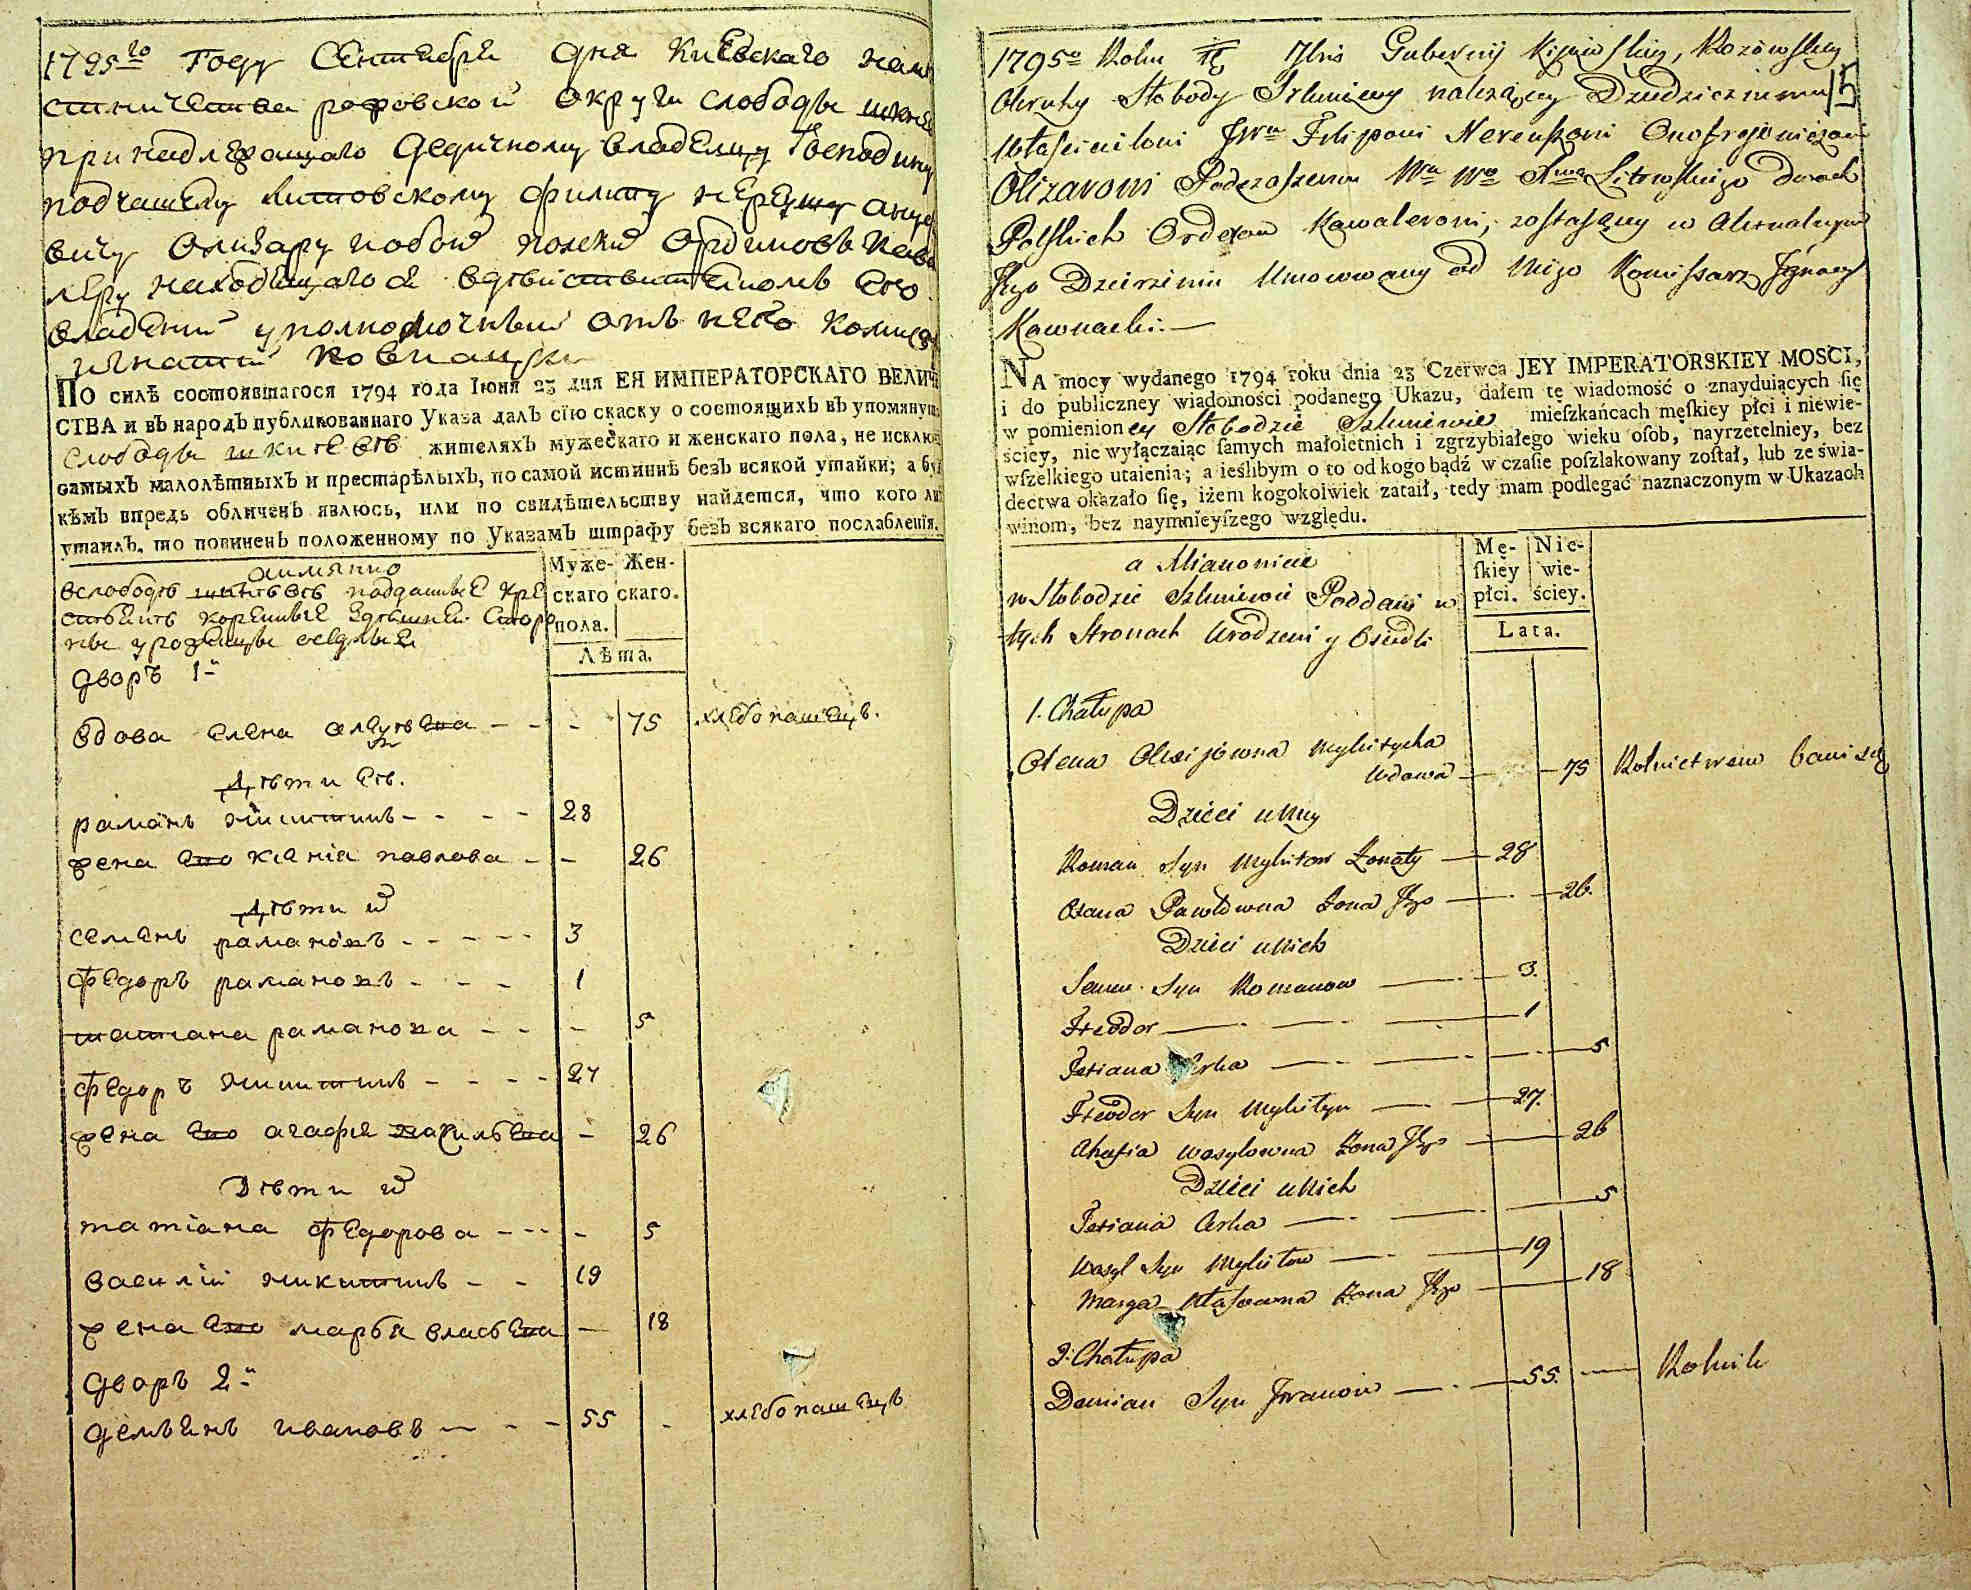 1795го Году Сентебря дня Киевского наме
стничества рафовской округи слободы
принадлежащаго Дедичному владелцу Господину
подчашему Литовскому Филипу Нерешу
вичу Олизару обой полски ординовъ Кава
леру находещагося вдѣйствителномъ Его
владении уполномочнѣи отъ него комисар
игнатий Ковнацки
ПО силѣ состоявшагося 1794 года Іюня 23 дня ЕЯ ИМПЕРАТОРСКАГО ВЕЛИЧЕ
СТВА и въ народъ публикованнаго Указа далъ сїю скаску о состоящихъ въ упомянут
слободы шкнеевѣ жителяхъ мужескаго и женскаго пола, не исключ
самыхъ малолѣтныхъ и престарѣлыхъ, по самой истиннѣ безъ всякой утайки; а бу
кѣмъ впредь обличенъ явлюсь, или по свидѣтельству найдется, что кого ли
утаилъ, то повиненъ положенному по Указамъ штрафу безъ всякаго послабленїя.
аимянно
вслободѣ подданые Кре
стьянѣ корешные сторо
ны уроженцы оседлые
Муже-
скаго
пола.
Жен-
скаго.
Лѣта.
дворъ 1й
вдова елена алеуѣева - - - 75 хлебопашецъ.
Дѣти Ев.
раманъ никитинъ - - - - 28
жена его ксенія павлова - - 26
Дѣти их
семенъ рамановъ - - - - - 3
федоръ рамановъ - - - 1
татиана раманова - - - 5
федоръ никитинъ - - - - 27
жена его агафия васильева - 26
Дѣти их
татіана федорова - - - - 5
василій никитинъ - - 19
жена его марѳа власьева - 18
дворъ 2й
демьянъ ивановъ - - - 55 - хлебопашецъ
1795o Roku Dnia Gubernij Kijowskiey, Rozowskiey
15
Okruhy Słobody Szkniewy należącey Dziedzicznemu
Właścicielowi JWu Filipowi Nereuszowi Onofrejowiczowi
Olizarowi Podczaszemu Wu Wo Xwa Litewskiego dwoch
Polskich Orderow Kawalerowi, zostaiącey w Aktualnym
Jego Dzierżeniu Umocowany od Niego Komissarz Ignacy
Kownacki. —
NA mocy wydanego 1794 roku dnia 23 Czerwca JEY IMPERATORSKIEY MOSCI,
i do publiczney wiadomości podanego Ukazu, dałem tę wiadomość o znayduiących się
w pomienioney Słobodzie Szkniewie mieszkańcach męskiey płci i niewie-
ściey, nie wyłączaiąc samych małoletnich i zgrzybiałego wieku osob, nayrzetelniey, bez
wszelkiego utaienia; a ieślibym o to od kogo bądź w czasie poszlakowany został, lub ze świa-
dectwa okazało się, iżem kogokolwiek zataił, tedy mam podlegać naznaczonym w Ukazach
winom, bez naymnieyszego względu.
a Mianowicie
w Słobodzie Szkniewie Poddani w
tych Stronach Urodzeni y Osiedli
Mę-
skiey
płci.
Nie-
wie-
ściey.
Lata.
1. Chałupa
Olena Olexijowna Mykitycha
Wdowa — — 75 Rolnictwem bawi się
Dzieci u Niey
Roman Syn Mykitow Żonaty — 28
Oxana Pawłowna Żona Jego — — 26.
Dzieci u Nich
Semen Syn Romanow — — 3.
Fedor — — — 1
Tetiana Corka — — — 5
Fedor Syn Mykityn — — 27.
Ahafia Wasylowna Żona Jego — 26
Dzieci u Nich
Tetiana Corka — — — 5
Wasyl Syn Mykitow — — 19
Marya Własowna Żona Jego — 18
2. Chałupa
Demian Syn Jwanow — — 55. — Rolnik